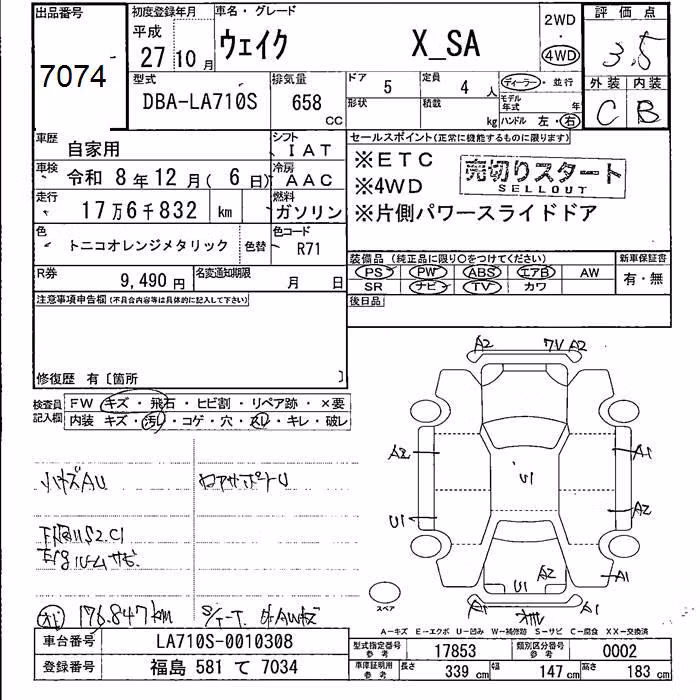 出品番号
7074
初度登録年月
平成
27年10月
車名・グレード
ウェイク X_SA
2WD
・
4WD
評価点
3.5
外装 内装
C B
型式
DBA-LA710S
排気量
658
CC
ドア
5
定員
4人
形状
積載
kg
ディーラー・並行
モデル年式 年
ハンドル 左・右
車歴
自家用
シフト
IAT
車検
令和 8年12月(6日)
冷房
AAC
走行
17万6千832 km
燃料
ガソリン
色
トニコオレンジメタリック
色替
色コード
R71
R券
9,490円
名変通知期限
月 日
セールスポイント(正常に機能するものに限ります)
※ETC
※4WD
※片側パワースライドドア
売切りスタート
SELLOUT
装備品 (純正品に限り○をつけてください)
PS PW ABS エアB AW
SR ナビ TV カワ
新車保証書
有・無
後日品
注意事項申告欄(不具合内容等は具体的に記入して下さい)
修復歴 有〔箇所 〕
検査員記入欄
FW キズ・飛石・ヒビ割・リペア跡・×要
内装 キズ・汚レ・コゲ・穴・スレ・キレ・破レ
ロアサポートU
下廻りS2.C1
176.847km
A2
A2
A2
U1
A1
A2
U1
U1
A2
A1
A1
A1
スペア
A−キズ E−エクボ U−凹み W−補修跡 S−サビ C−腐食 XX−交換済
車台番号
LA710S-0010308
登録番号
福島 581 て 7034
型式指定番号
参考
17853
類別区分番号
参考
0002
車庫証明用
参考
長さ
339 cm
幅
147 cm
高さ
183 cm